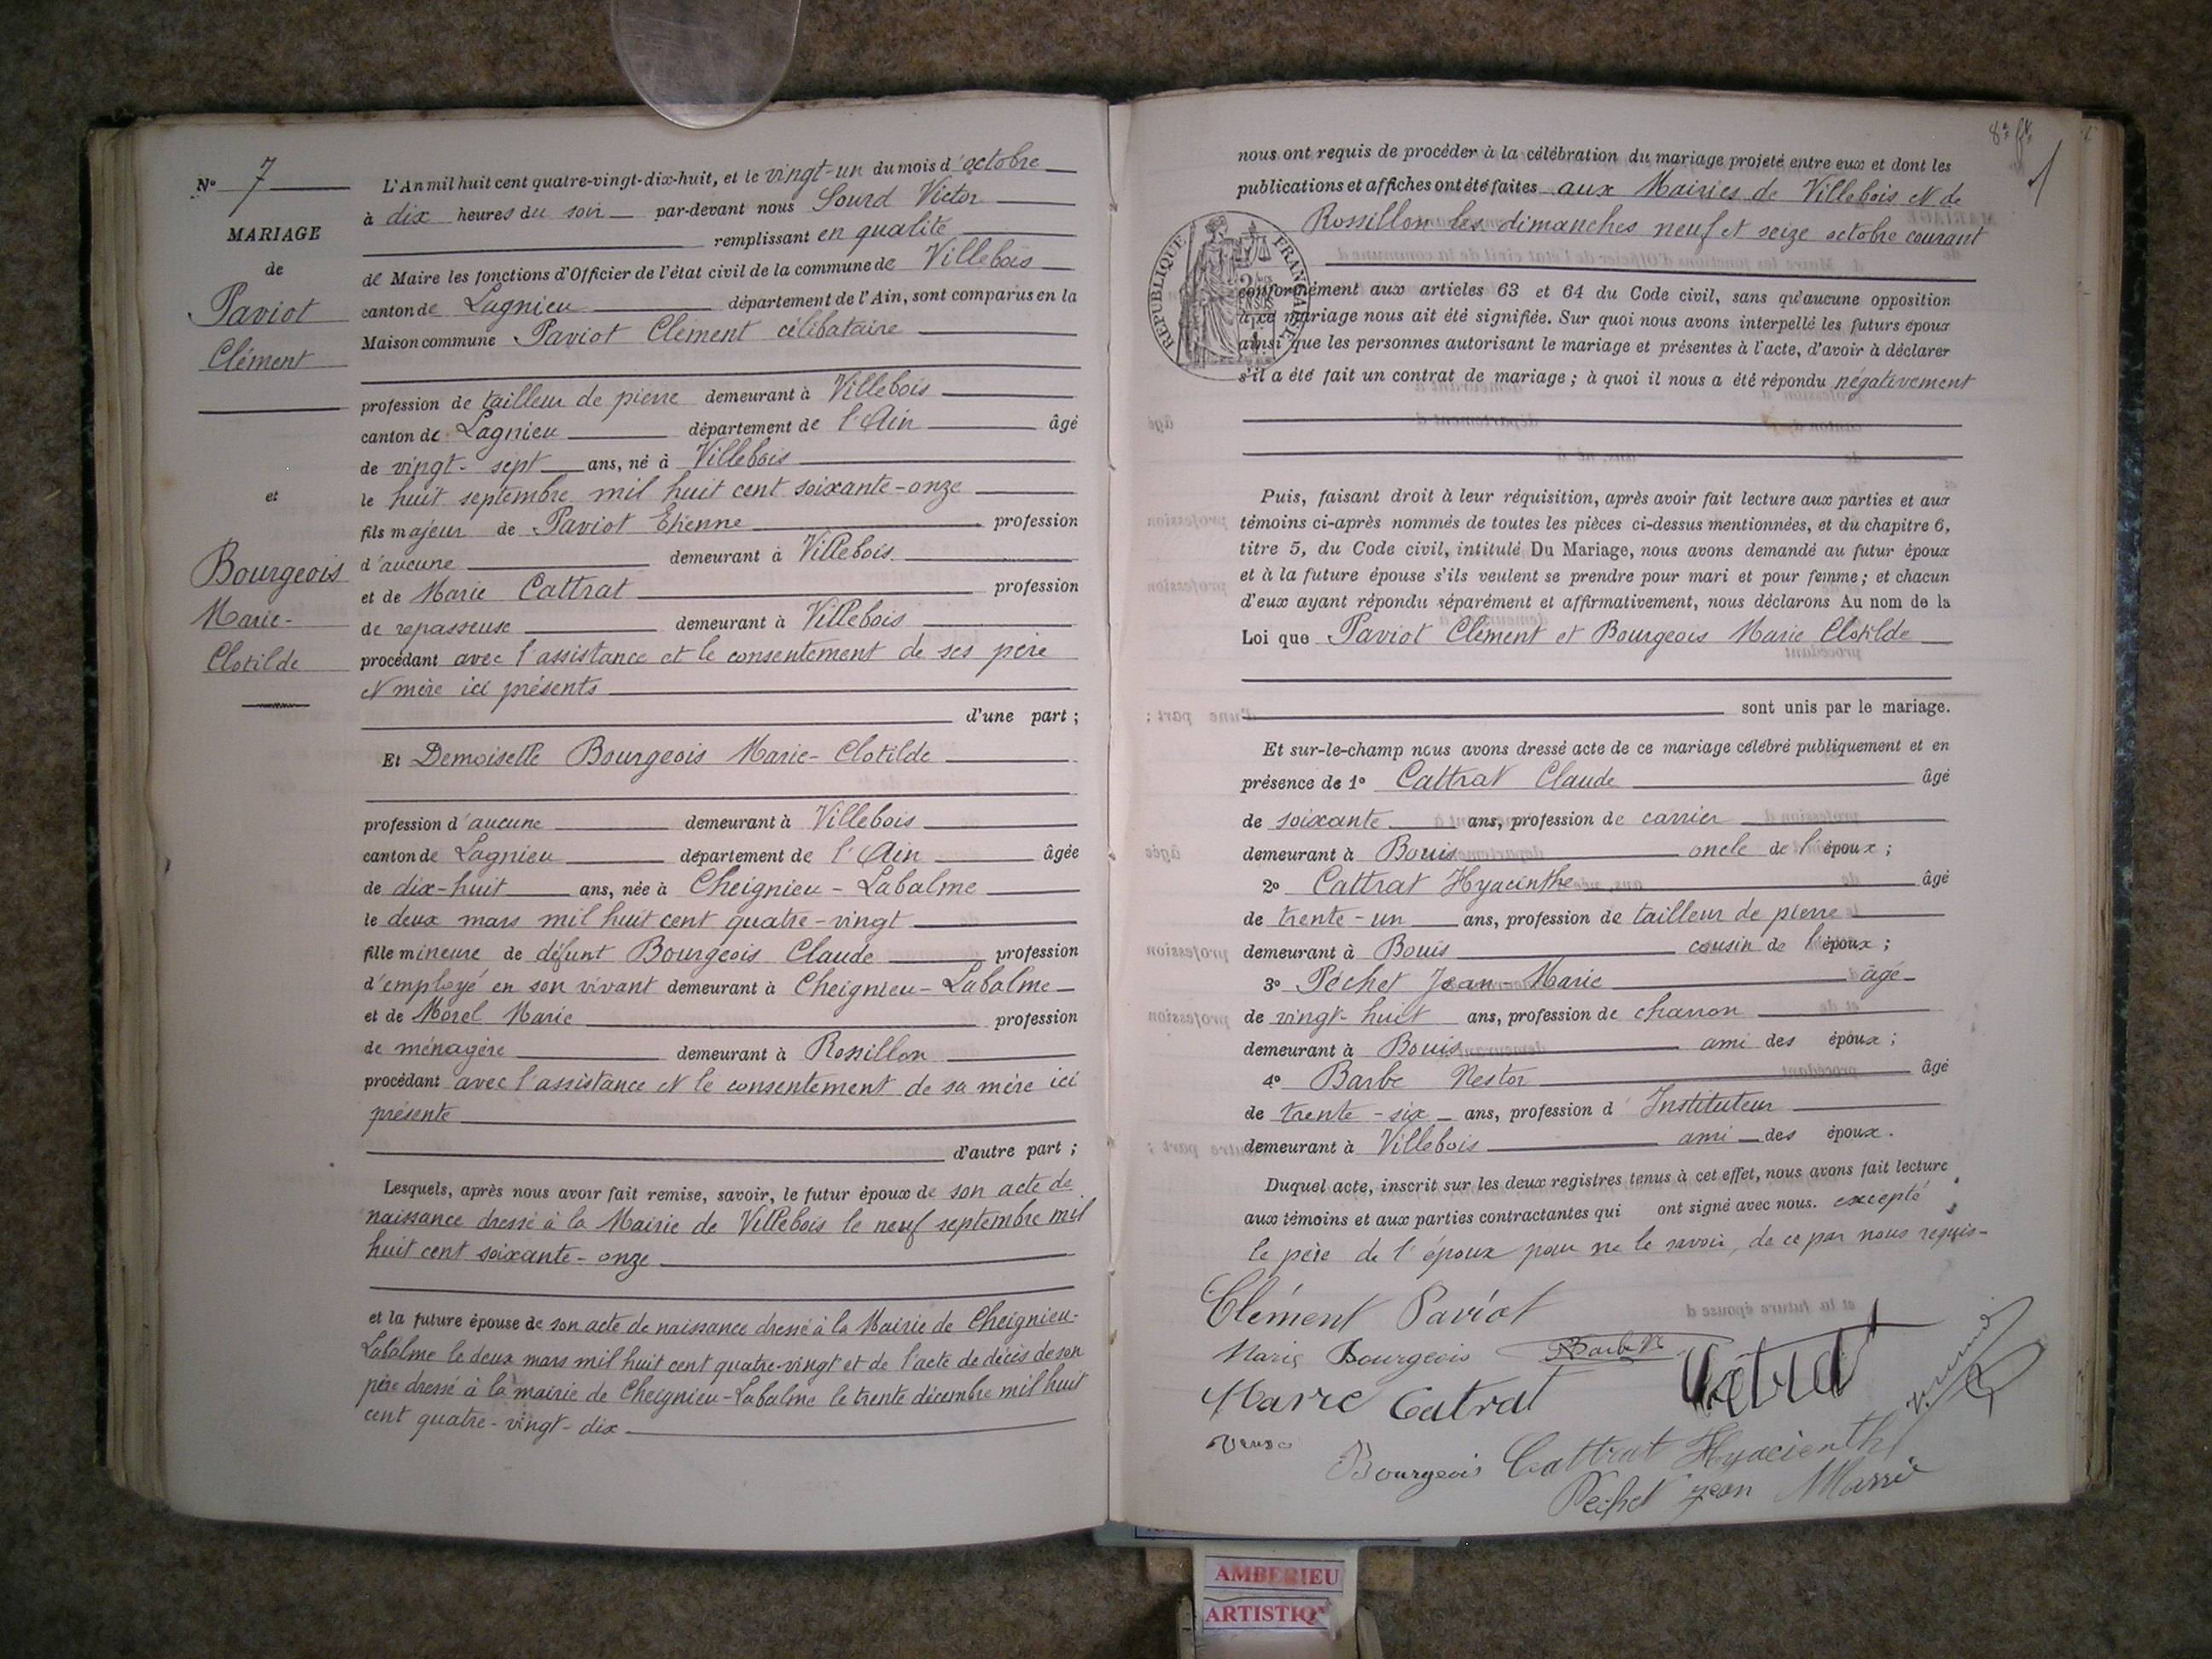 N° 7
MARIAGE
de
Paviot
Clément
et
Bourgeois
Marie-
Clotilde
L'An mil huit cent quatre-vingt-dix-huit, et le vingt-un du mois d'octobre
à dix heures du soir par-devant nous Sourd Victor
remplissant en qualité
de Maire les fonctions d'Officier de l'état civil de la commune de Villebois
canton de Lagnieu département de l'Ain, sont comparus en la
Maison commune Paviot Clément célibataire
profession de tailleur de pierre demeurant à Villebois
canton de Lagnieu département de l'Ain âgé
de vingt-sept ans, né à Villebois
le huit septembre mil huit cent soixante-onze
fils majeur de Paviot Etienne profession
d'aucune demeurant à Villebois
et de Marie Cattrat profession
de repasseuse demeurant à Villebois
procédant avec l'assistance et le consentement de ses père
et mère ici présents
d'une part ;
Et Demoiselle Bourgeois Marie-Clotilde
profession d'aucune demeurant à Villebois
canton de Lagnieu département de l'Ain âgée
de dix-huit ans, née à Cheignieu-Labalme
le deux mars mil huit cent quatre-vingt
fille mineure de défunt Bourgeois Claude profession
d'employé en son vivant demeurant à Cheignieu-Labalme
et de Morel Marie profession
de ménagère demeurant à Rossillon
procédant avec l'assistance et le consentement de sa mère ici
présente
d'autre part ;
Lesquels, après nous avoir fait remise, savoir, le futur époux de son acte de
naissance dressé à la Mairie de Villebois le neuf septembre mil
huit cent soixante-onze
et la future épouse de son acte de naissance dressé à la Mairie de Cheignieu-
Labalme le deux mars mil huit cent quatre-vingt et de l'acte de décès de son
père dressé à la mairie de Cheignieu-Labalme le trente décembre mil huit
cent quatre-vingt-dix
nous ont requis de procéder à la célébration du mariage projeté entre eux et dont les
publications et affiches ont été faites aux Mairies de Villebois et de
Rossillon les dimanches neuf et seize octobre courant
REPUBLIQUE FRANÇAISE
conformément aux articles 63 et 64 du Code civil, sans qu'aucune opposition
à ce mariage nous ait été signifiée. Sur quoi nous avons interpellé les futurs époux
ainsi que les personnes autorisant le mariage et présentes à l'acte, d'avoir à déclarer
s'il a été fait un contrat de mariage ; à quoi il nous a été répondu négativement
Puis, faisant droit à leur réquisition, après avoir fait lecture aux parties et aux
témoins ci-après nommés de toutes les pièces ci-dessus mentionnées, et du chapitre 6,
titre 5, du Code civil, intitulé Du Mariage, nous avons demandé au futur époux
et à la future épouse s'ils veulent se prendre pour mari et pour femme ; et chacun
d'eux ayant répondu séparément et affirmativement, nous déclarons Au nom de la
Loi que Paviot Clément et Bourgeois Marie Clotilde
sont unis par le mariage.
Et sur-le-champ nous avons dressé acte de ce mariage célébré publiquement et en
présence de 1° Cattrat Claude âgé
de soixante ans, profession de carrier
demeurant à Bouis oncle de l'époux ;
2° Cattrat Hyacinthe âgé
de trente-un ans, profession de tailleur de pierre
demeurant à Bouis cousin de l'époux ;
3° Péchet Jean-Marie âgé
de vingt-huit ans, profession de charron
demeurant à Bouis ami des époux ;
4° Barbe Nestor âgé
de trente-six ans, profession d'Instituteur
demeurant à Villebois ami des époux.
Duquel acte, inscrit sur les deux registres tenus à cet effet, nous avons fait lecture
aux témoins et aux parties contractantes qui ont signé avec nous. excepté
le père de l'époux pour ne le savoir, de ce par nous requis-
Clément Paviot
Marie Bourgeois Barbe N
Marie Catrat Catrat
Bourgeois Cattrat Hyacienth
Pechet jean Marie
AMBERIEU
ARTISTIQ